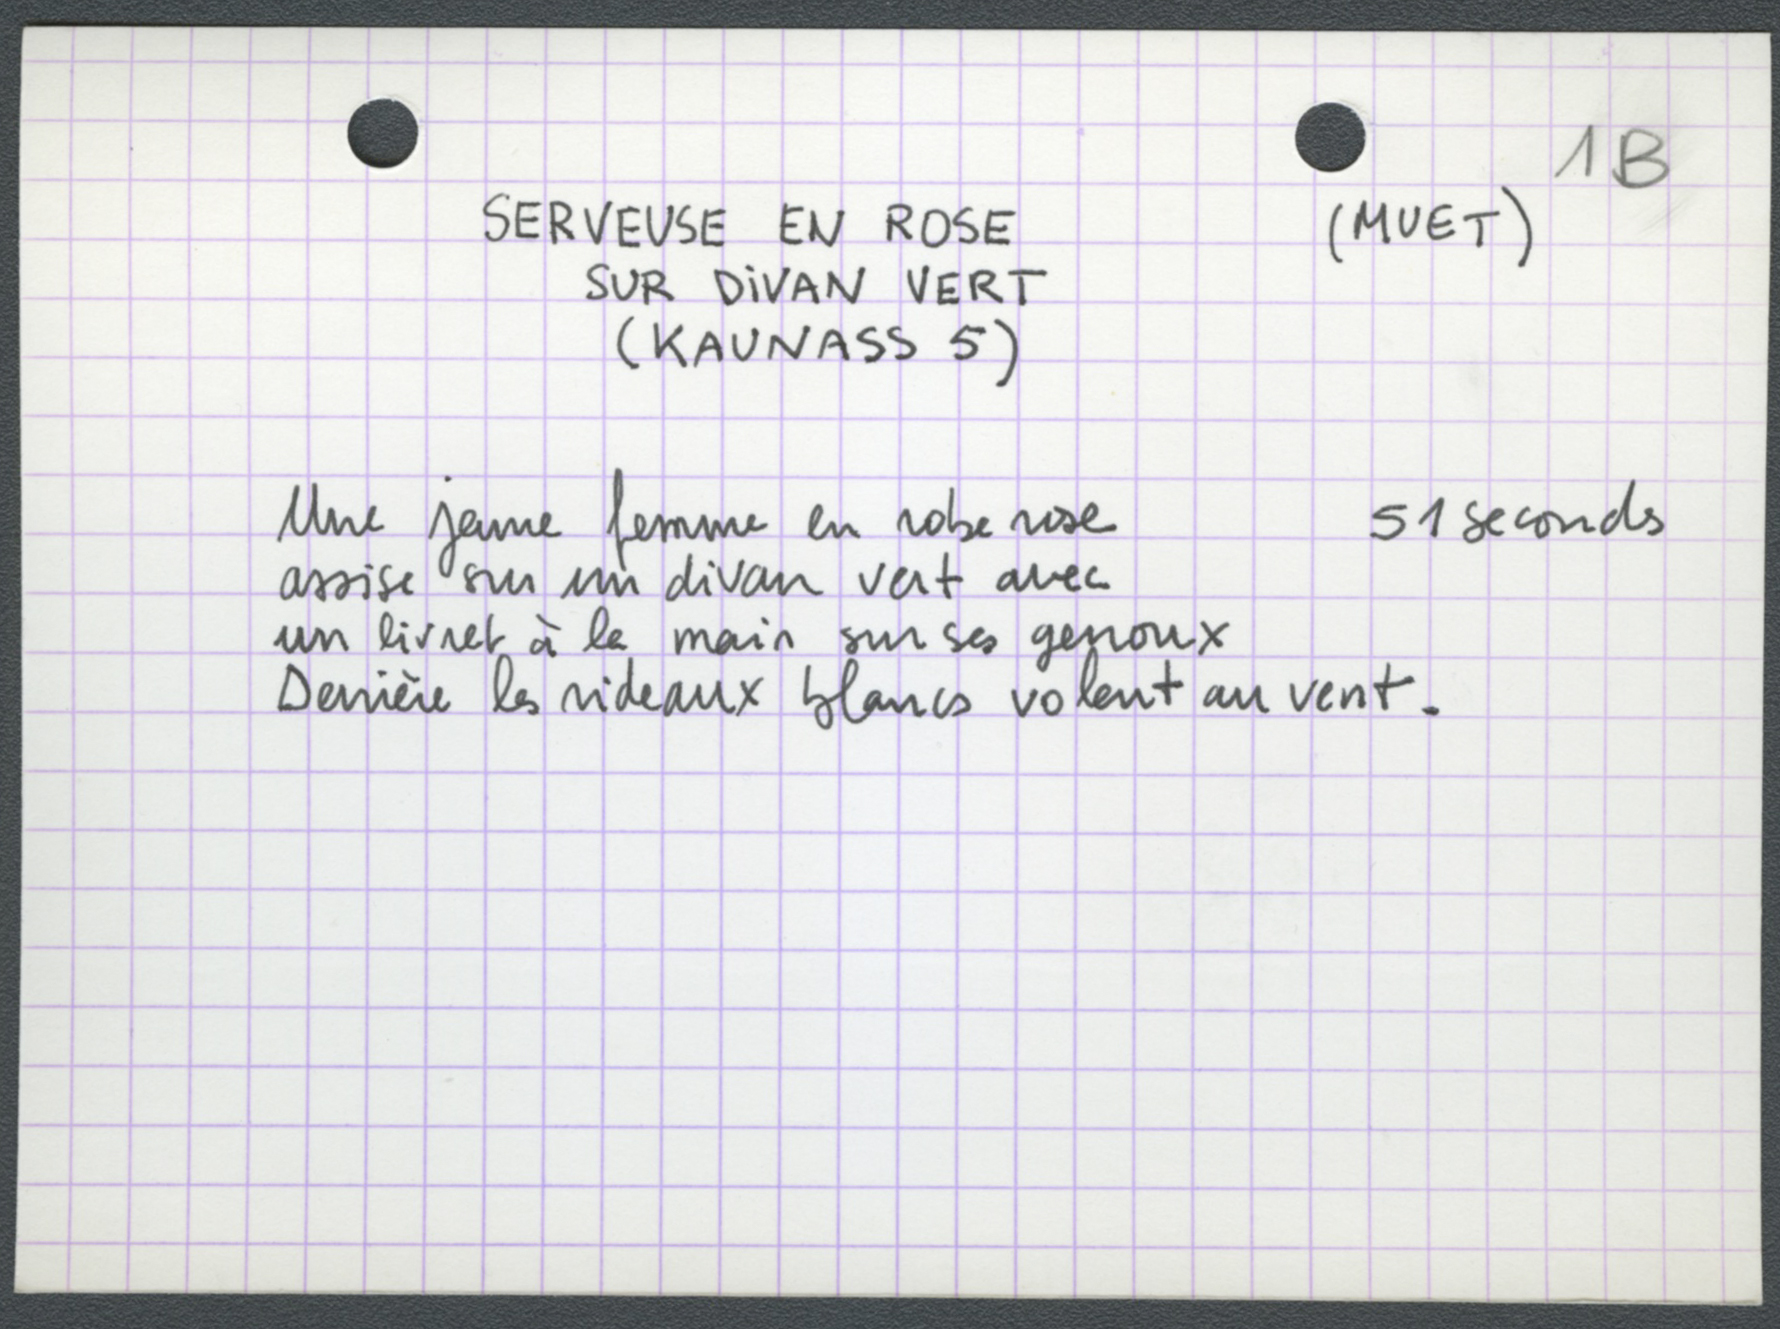 1B
SERVEUSE EN ROSE (MUET)
SUR DIVAN VERT
(KAUNASS 5)
Une jeune femme en robe rose 51 seconds
assise sur un divan vert avec
un livret à la main sur ses genoux
Derrière les rideaux blancs volent au vent.